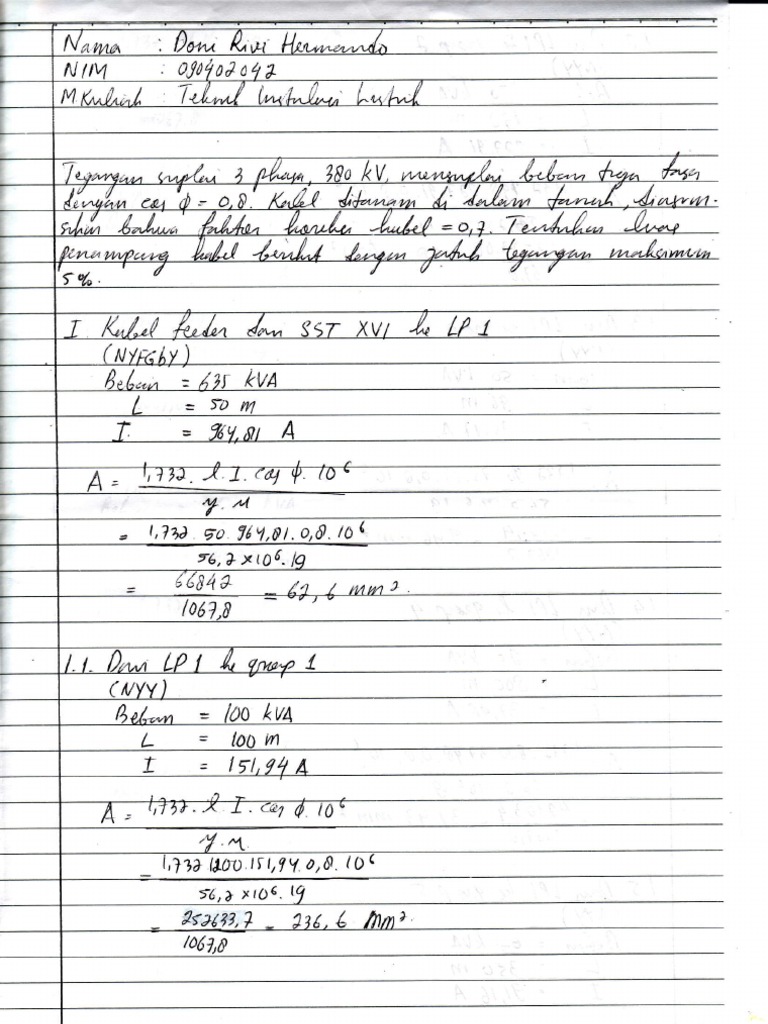 Nama : Doni Rivi Hermando
NIM : 090402042
M.Kuliah : Teknik Instalasi Listrik
Tegangan suplai 3 phasa, 380 kV, mensuplai beban tiga fasa
dengan cos ϕ = 0,8. Kabel ditanam di dalam tanah, diasum-
sikan bahwa faktor koreksi kabel = 0,7. Tentukan luas
penampang kabel berikut dengan jatuh tegangan maksimum
5%.
I. Kabel feeder dari SST XVI ke LP 1
(NYFGbY)
Beban = 635 kVA
L = 50 m
I. = 964,81 A
A = 1,732. l. I. cos ϕ. 10⁶
y. u
= 1,732. 50. 964,81. 0,8. 10⁶
56,2 × 10⁶. 19
= 66842
1067,8
= 62,6 mm².
1.1. Dari LP 1 ke group 1
(NYY)
Beban = 100 kVA
L = 100 m
I = 151,94 A
A = 1,732. l I. cos ϕ. 10⁶
y. u.
= 1,732. 1200. 151,94. 0,8. 10⁶
56,2 × 10⁶. 19
= 252633,7
1067,8
= 236,6 mm².